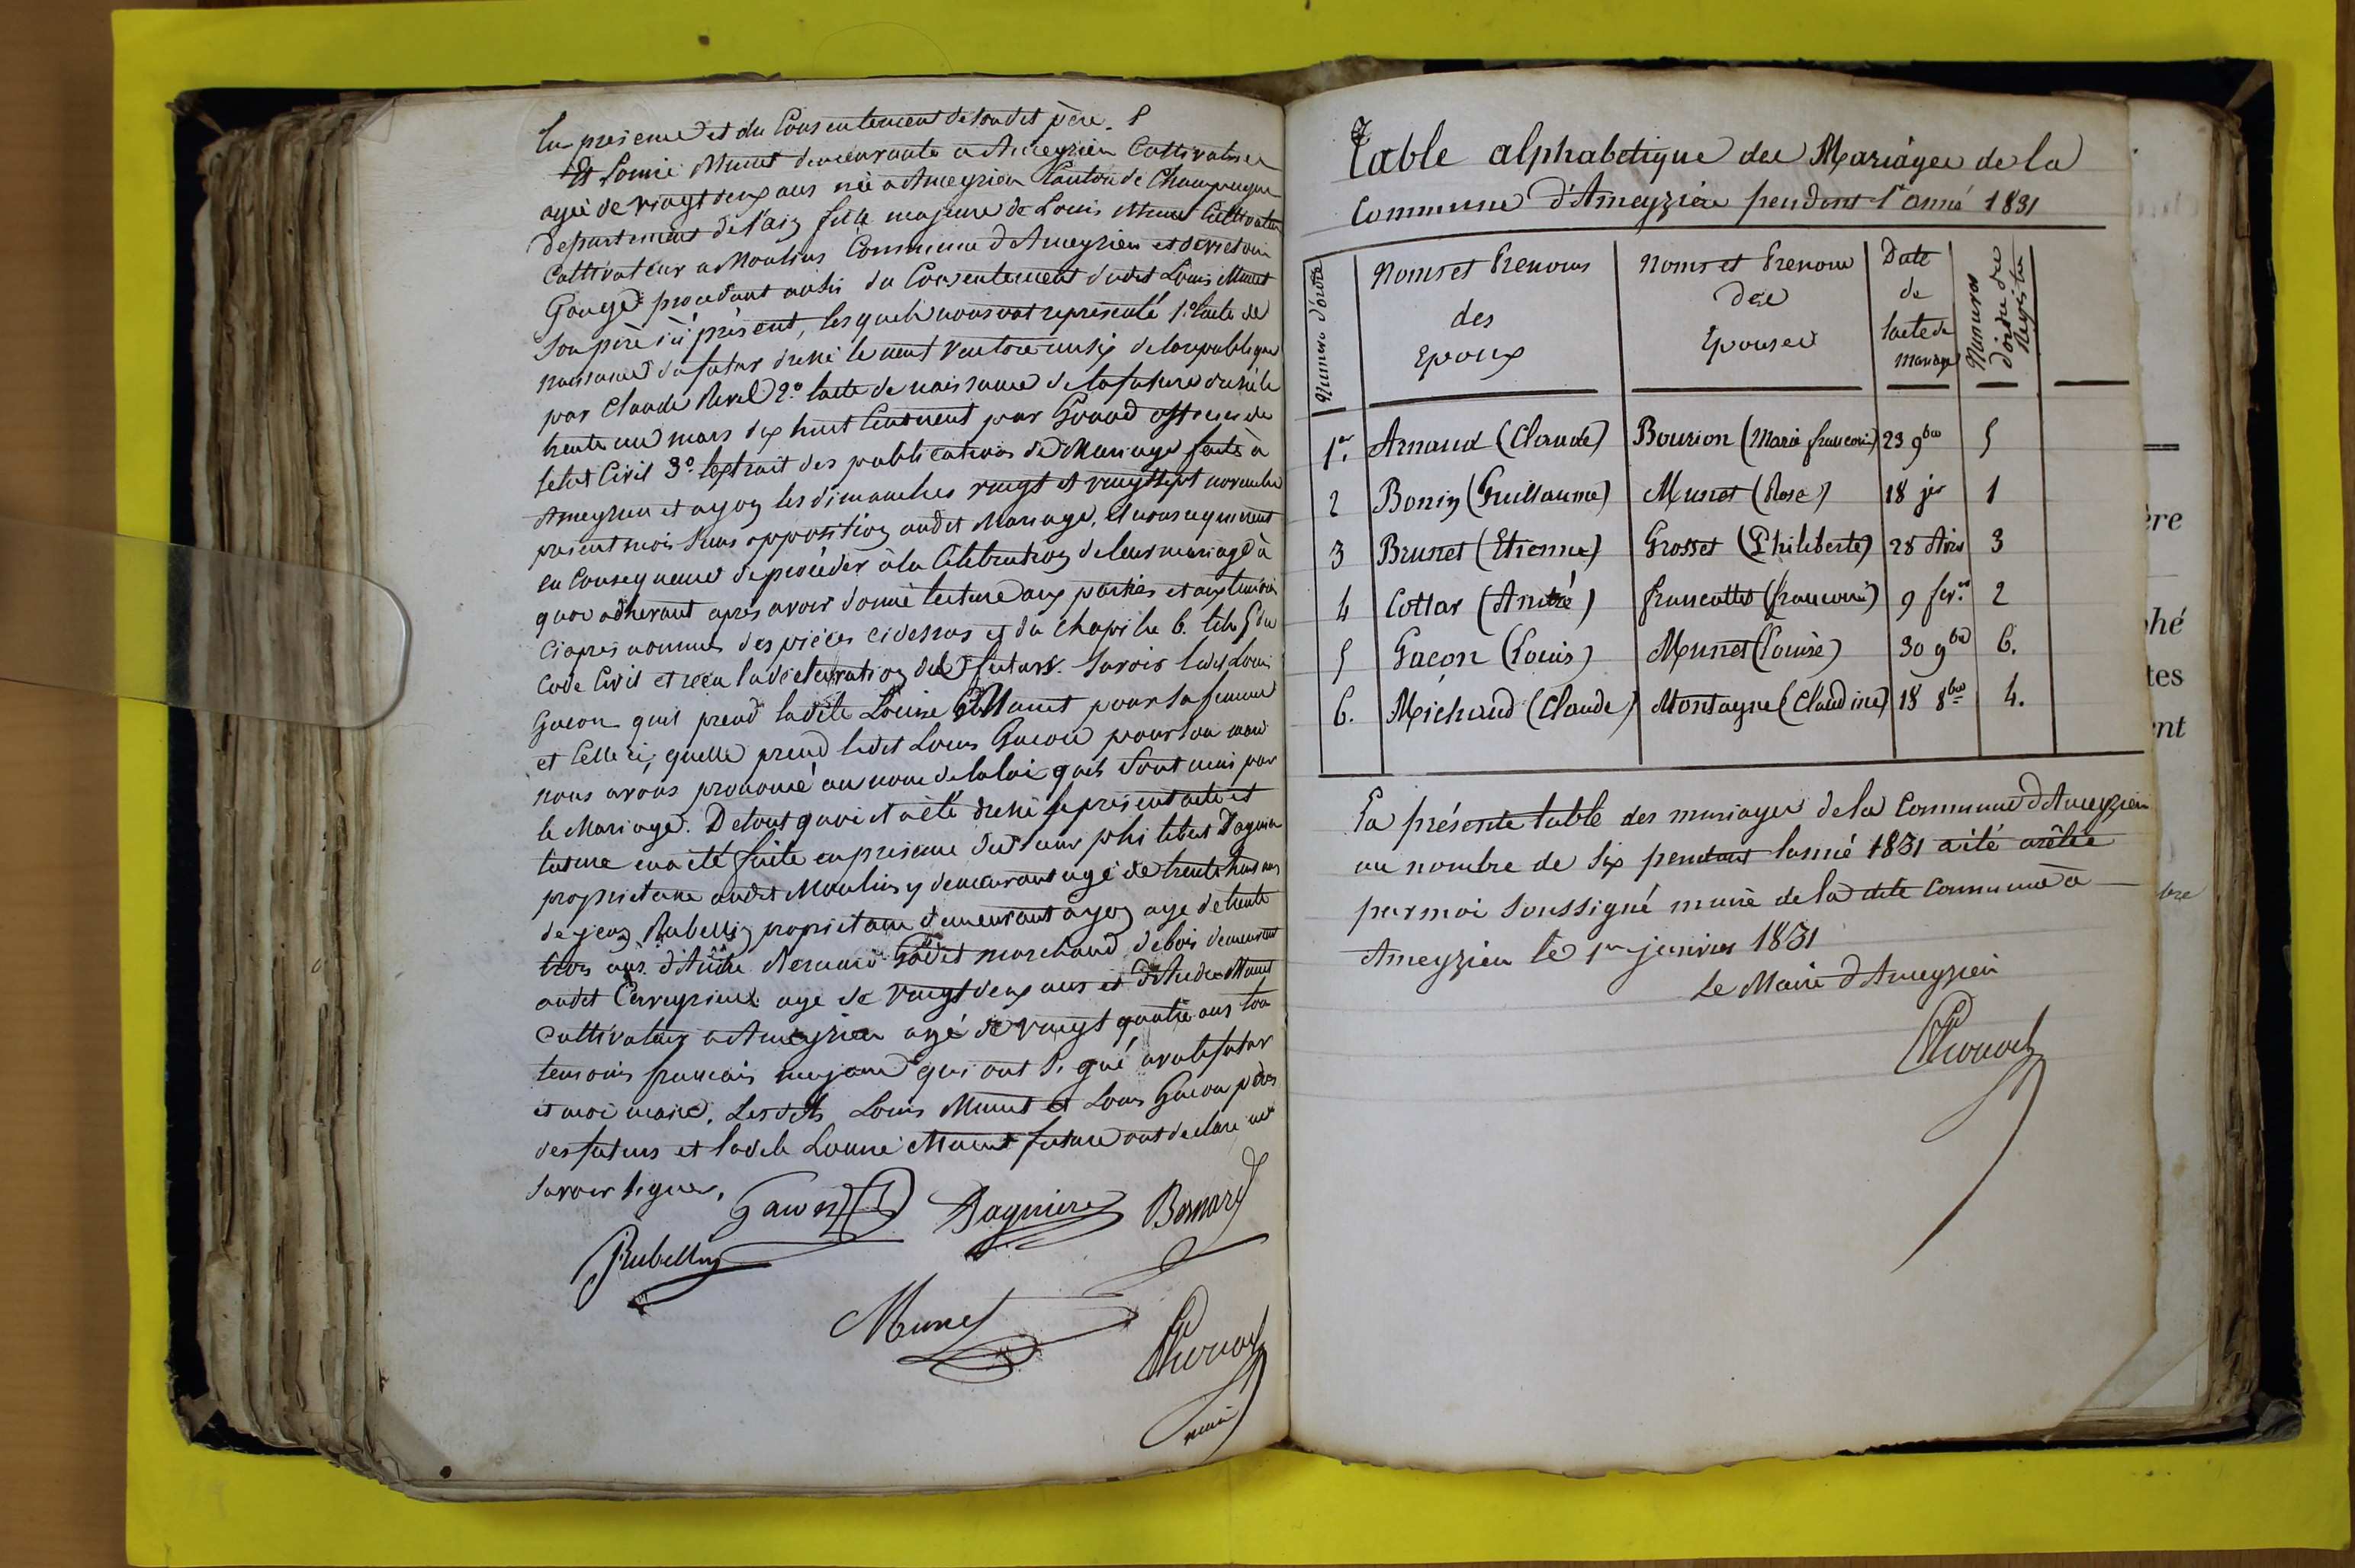 En presence et du Consentement de sondit père.
Et Louise Munet demeurante a Ameyzieu Cultivatrice
agée de vingt deux ans née a Ameyzieu Canton de Champagne
departement de l'ain fille majeure de Louis Munet Cultivateur
Cultivateur a Moulins Commune d'Ameyzieu et
Gouge procedant aussi du Consentement dudit Louis Munet
son père ici présent, lesquels nous ont représenté 1° l'acte de
naissance du futur dressé le ventose an six de la republique
par Claude Revel 2° l'acte de naissance de la future dressé le
trente un mars dix huit Cent neuf par officier de
letat Civil 3° lextrait des publications de Mariage faite à
Ameyzieu et ayon les dimanches vingt et vingt sept novembre
present mois sans opposition audit Mariage, et nous requierent
en Consequence de proceder à la Celebration de leur mariage à
quoi adherant après avoir donné lecture aux parties et aux temoins
ci après nommés des pièces ci dessus et du chapitre 6. titre 5 du
Code Civil et reçu la déclaration des futurs. Savoir ledit Louis
Gacon quil prend ladite Louise Munet pour sa femme
et Celle ci, quelle prend ledit Louis Gacon pour son mari
nous avons prononcé au nom de la loi quils sont unis par
le Mariage. De tout quoi il a été dressé le present acte et
lecture en a été faite en presence des sieurs philibert Dagniere
proprietaire audit Moulins y demeurant agé de trente huit ans
de jean Rubellin proprietaire demeurant ayon age de trente
trois ans. d'Anthe Bernard marchand de bois demeurant
audit Cerveyrieux age de vingt deux ans et d'Andre Munet
Cultivateur a Ameyzieu agé de vingt quatre ans tous
temoins francais majeurs qui ont Signé avec le futur
et moi maire. Lesdits Louis Munet et Louis Gacon pères
des futurs et ladite Louise Munet future ont declaré ne
savoir signer.
Gacon Dagniere Bernard
Rubellin
Munet
maire
Table alphabetique des Mariages de la
Commune d'Ameyzieu pendant l'année 1831
Numero d'ordre Noms et Prenoms des Epoux Noms et Prenoms des Epouses Date de lacte de mariage Numeros d'ordre des Registres
1er. Arnaud (Claude) Bourion (Marie francoise) 23 9bre 5
2 Bonin (Guillaume) Munet (Rose) 18 jer 1
3 Brunet (Etienne) Grosset (Philiberte) 28 Avril 3
4 Cottar (André) francattes (francoise) 9 fer. 2
5 Gacon (Louis) Munet (Louise) 30 9bre 6.
6. Michaud (Claude) Montagne (Claudine) 18 8bre 4.
La présente table des mariages de la Commune d'Ameyzieu
au nombre de Six pendant lannée 1831 a été arêtée
par moi soussigné maire de la dite Commune à
Ameyzieu le 1er janvier 1831
Le Maire d'Ameyzieu
ère
phé
tes
nt
bre